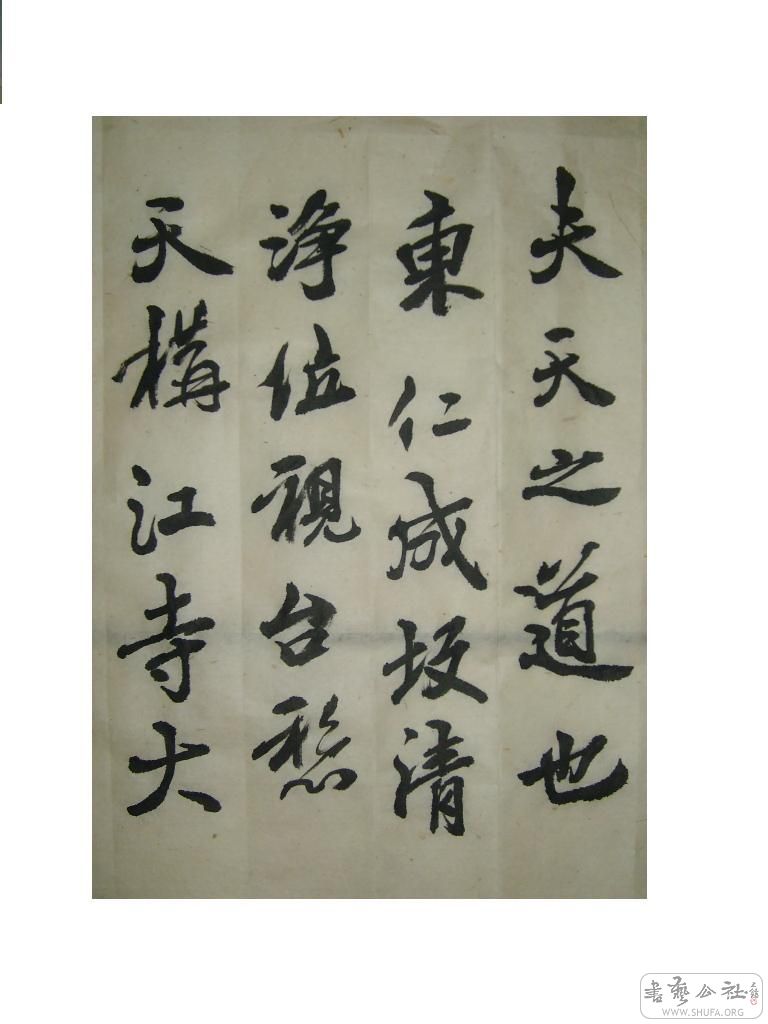 夫天之道也
東仁成清
淨位視台
天構江寺大
書藝公社
WWW.SHUFA.ORG